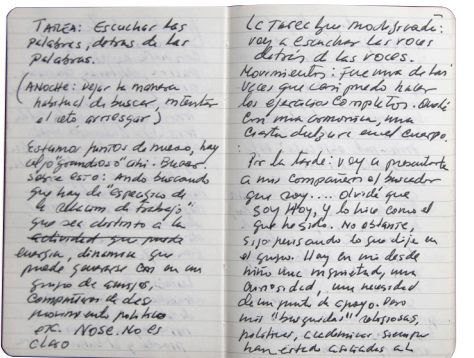 TAREA: Escuchar las
palabras, detras de las
palabras.
(ANOCHE: Dejar la manera
habitual de buscar, intentar
el reto, arriesgar)
Estamos juntos de nuevo, hay
algo "grandioso" ahi. Buscar.
Sobre esto: Ando buscando
que hay de "Especifico de
la relacion de trabajo"
que sea distinto a la
actividad que pueda
energia, dinamica que
puede generarse con en un
grupo de amigos,
compañeros de
movimiento politico
etc. No se. No es
claro
La tarea fue modificada:
voy a escuchar las voces
detrás de las voces.
Movimientos: Fue una de las
veces que casi puedo hacer
los ejercicios completos. Quedé
con una armonica, una
cierta en el cuerpo.
Por la tarde: voy a presentarle
a mis compañeros el buscador
que soy.... olvidé que
soy Hoy, y lo hice como el
que he sido. No obstante,
sigo pensando lo que dije en
el grupo. Hay en mi desde
niño una inquietud, una
curiosidad, una necesidad
de un punto de apoyo. Pero
mis "busquedas" religiosas,
politicas, academicas siempre
han estado ligadas al